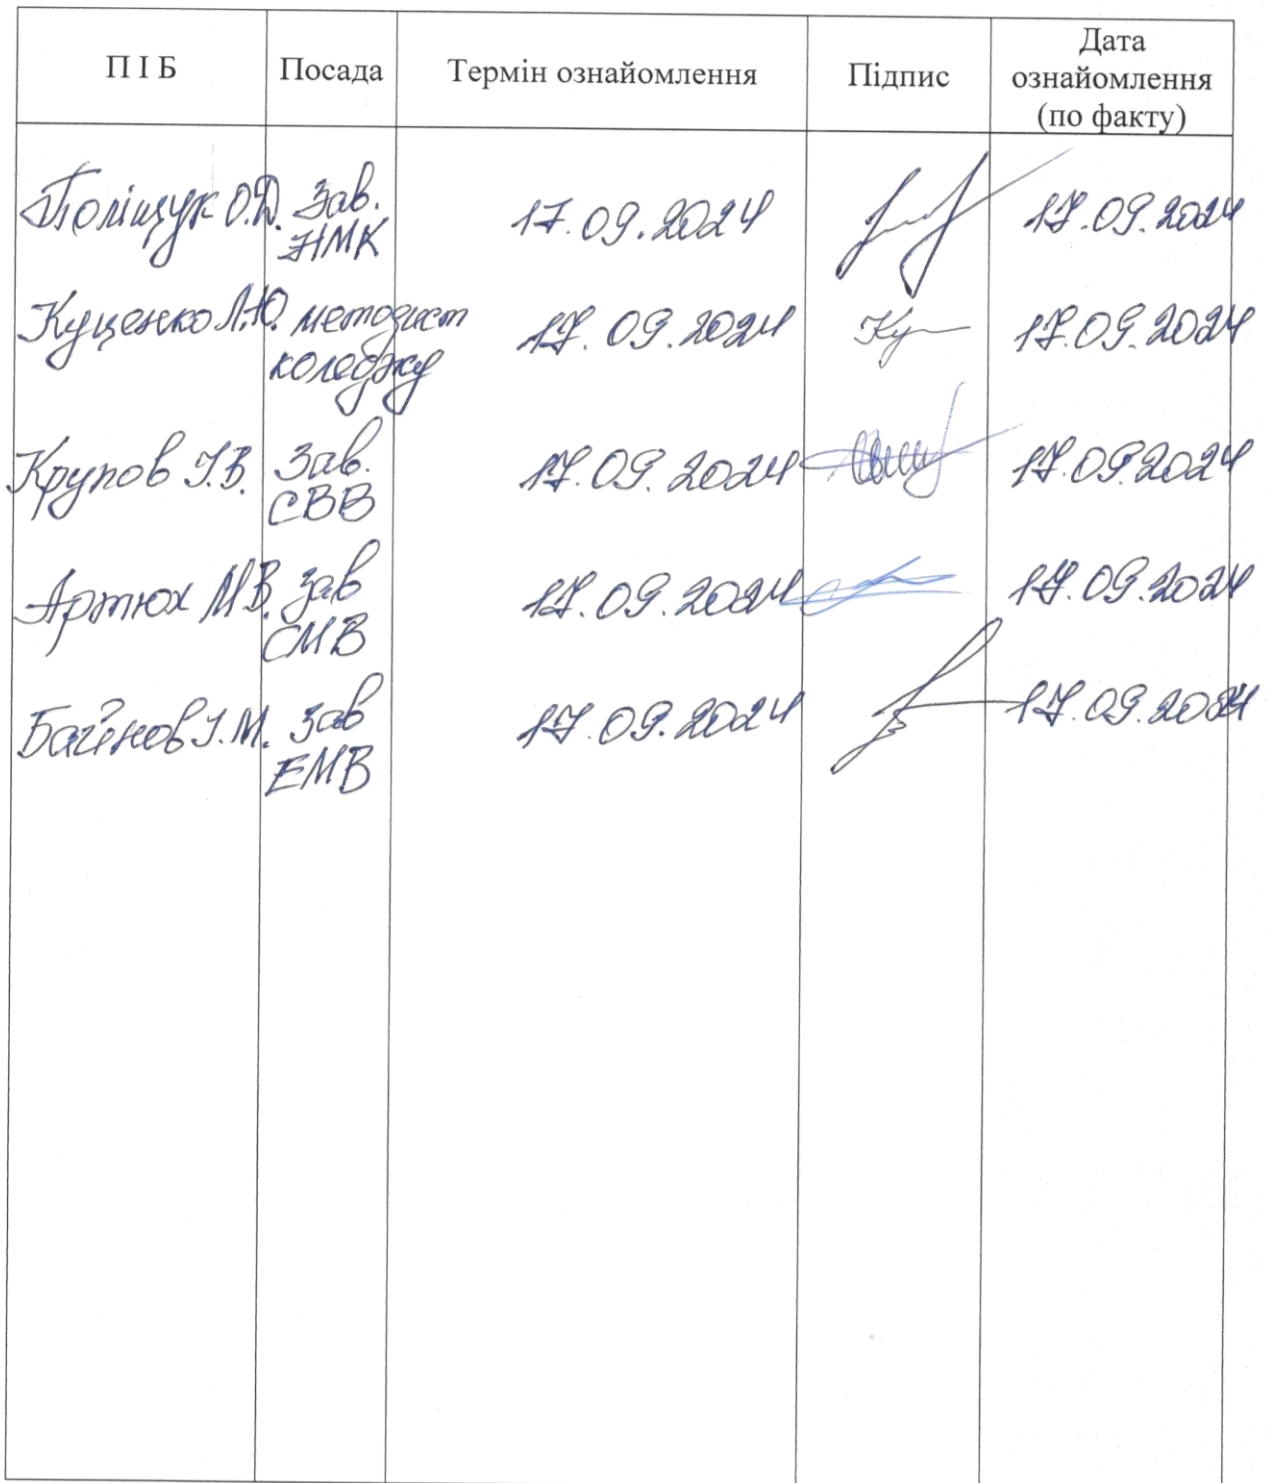 П І Б Посада Термін ознайомлення Підпис Дата ознайомлення (по факту)
Поліщук О.Д. Зав. НМК 17.09.2024 17.09.2024
Куценко Л.Ю. методист коледжу 17.09.2024 17.09.2024
Крупов І.В. Зав. СВВ 17.09.2024 17.09.2024
Артюх М.В. Зав СМВ 17.09.2024 17.09.2024
Баєнов І.М. Зав ЕМВ 17.09.2024 17.09.2024